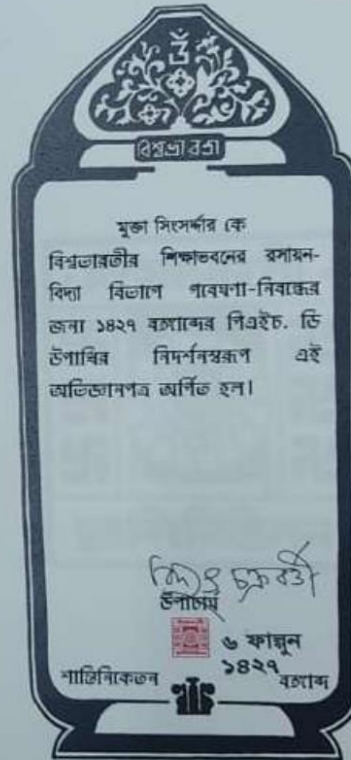 ওঁ
বিশ্বভারতী
মুক্তা সিংসর্দ্দার কে
বিশ্বভারতীর শিক্ষাভবনের রসায়ন-
বিদ্যা বিভাগে গবেষণা-নিবন্ধের
জন্য ১৪২৭ বঙ্গাব্দের পিএইচ. ডি
উপাধির নিদর্শনস্বরূপ এই
অভিজ্ঞানপত্র অর্পিত হল।
বিদ্যুৎ চক্রবর্তী
উপাচার্য
৬ ফাল্গুন
শান্তিনিকেতন ১৪২৭ বঙ্গাব্দ